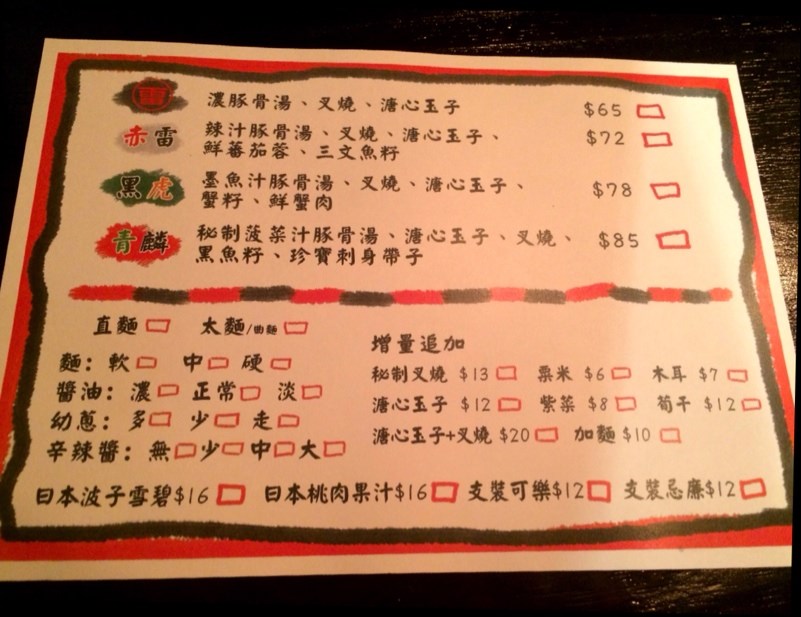 濃豚骨湯、叉燒、溏心玉子 $65
赤雷 辣汁豚骨湯、叉燒、溏心玉子、 $72
鮮蕃茄蓉、三文魚籽
黑虎 墨魚汁豚骨湯、叉燒、溏心玉子、 $78
蟹籽、鮮蟹肉
青麟 秘制菠菜汁豚骨湯、溏心玉子、叉燒、 $85
黑魚籽、珍寶刺身帶子
直麵 太麵/曲麵
麵: 軟 中 硬
醬油: 濃 正常 淡
幼蔥: 多 少 走
辛辣醬: 無 少 中 大
增量追加
秘制叉燒 $13 粟米 $6 木耳 $7
溏心玉子 $12 紫菜 $8 荀干 $12
溏心玉子+叉燒 $20 加麵 $10
日本波子雪碧$16 日本桃肉果汁$16 支裝可樂$12 支裝忌廉$12